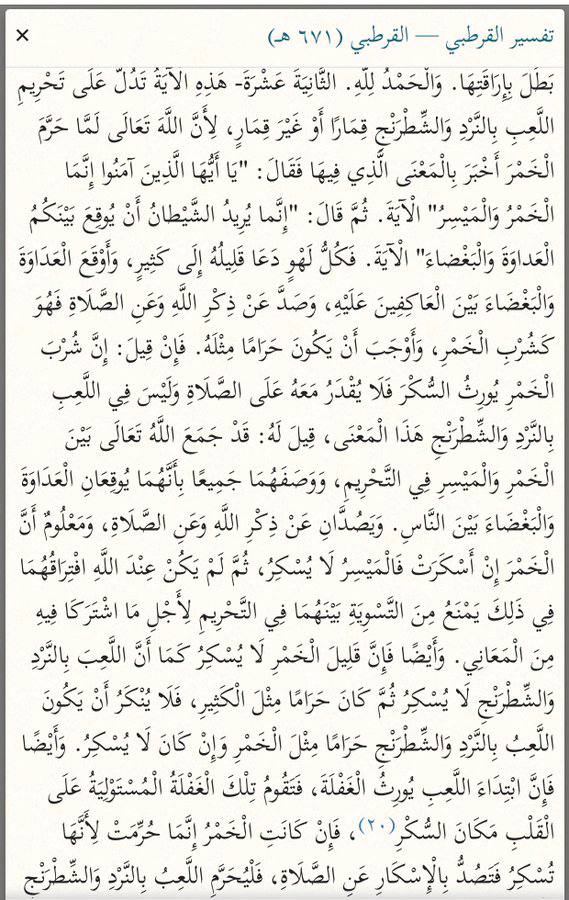 تفسير القرطبي — القرطبي (٦٧١ هـ) ×
بَطَلَ بِإِرَاقَتِهَا. وَالْحَمْدُ لِلَّهِ. الثَّانِيَةَ عَشْرَةَ- هَذِهِ الْآيَةُ تَدُلُّ عَلَى تَحْرِيمِ
اللَّعِبِ بِالنَّرْدِ وَالشِّطْرَنْجِ قِمَارًا أَوْ غَيْرَ قِمَارٍ، لِأَنَّ اللَّهَ تَعَالَى لَمَّا حَرَّمَ
الْخَمْرَ أَخْبَرَ بِالْمَعْنَى الَّذِي فِيهَا فَقَالَ: "يَا أَيُّهَا الَّذِينَ آمَنُوا إِنَّمَا
الْخَمْرُ وَالْمَيْسِرُ" الْآيَةَ. ثُمَّ قَالَ: "إِنَّما يُرِيدُ الشَّيْطانُ أَنْ يُوقِعَ بَيْنَكُمُ
الْعَداوَةَ وَالْبَغْضاءَ" الْآيَةَ. فَكُلُّ لَهْوٍ دَعَا قَلِيلُهُ إِلَى كَثِيرٍ، وَأَوْقَعَ الْعَدَاوَةَ
وَالْبَغْضَاءَ بَيْنَ الْعَاكِفِينَ عَلَيْهِ، وَصَدَّ عَنْ ذِكْرِ اللَّهِ وَعَنِ الصَّلَاةِ فَهُوَ
كَشُرْبِ الْخَمْرِ، وَأَوْجَبَ أَنْ يَكُونَ حَرَامًا مِثْلَهُ. فَإِنْ قِيلَ: إِنَّ شُرْبَ
الْخَمْرِ يُورِثُ السُّكْرَ فَلَا يُقْدَرُ مَعَهُ عَلَى الصَّلَاةِ وَلَيْسَ فِي اللَّعِبِ
بِالنَّرْدِ وَالشِّطْرَنْجِ هَذَا الْمَعْنَى، قِيلَ لَهُ: قَدْ جَمَعَ اللَّهُ تَعَالَى بَيْنَ
الْخَمْرِ وَالْمَيْسِرِ فِي التَّحْرِيمِ، وَوَصَفَهُمَا جَمِيعًا بِأَنَّهُمَا يُوقِعَانِ الْعَدَاوَةَ
وَالْبَغْضَاءَ بَيْنَ النَّاسِ. وَيَصُدَّانِ عَنْ ذِكْرِ اللَّهِ وَعَنِ الصَّلَاةِ، وَمَعْلُومٌ أَنَّ
الْخَمْرَ إِنْ أَسْكَرَتْ فَالْمَيْسِرُ لَا يُسْكِرُ، ثُمَّ لَمْ يَكُنْ عِنْدَ اللَّهِ افْتِرَاقُهُمَا
فِي ذَلِكَ يَمْنَعُ مِنَ التَّسْوِيَةِ بَيْنَهُمَا فِي التَّحْرِيمِ لِأَجْلِ مَا اشْتَرَكَا فِيهِ
مِنَ الْمَعَانِي. وَأَيْضًا فَإِنَّ قَلِيلَ الْخَمْرِ لَا يُسْكِرُ كَمَا أَنَّ اللَّعِبَ بِالنَّرْدِ
وَالشِّطْرَنْجِ لَا يُسْكِرُ ثُمَّ كَانَ حَرَامًا مِثْلَ الْكَثِيرِ، فَلَا يُنْكَرُ أَنْ يَكُونَ
اللَّعِبُ بِالنَّرْدِ وَالشِّطْرَنْجِ حَرَامًا مِثْلَ الْخَمْرِ وَإِنْ كَانَ لَا يُسْكِرُ. وَأَيْضًا
فَإِنَّ ابْتِدَاءَ اللَّعِبِ يُورِثُ الْغَفْلَةَ، فَتَقُومُ تِلْكَ الْغَفْلَةُ الْمُسْتَوْلِيَةُ عَلَى
الْقَلْبِ مَكَانَ السُّكْرِ(٢٠)، فَإِنْ كَانَتِ الْخَمْرُ إِنَّمَا حُرِّمَتْ لِأَنَّهَا
تُسْكِرُ فَتَصُدُّ بِالْإِسْكَارِ عَنِ الصَّلَاةِ، فَلْيُحَرَّمِ اللَّعِبُ بِالنَّرْدِ وَالشِّطْرَنْجِ